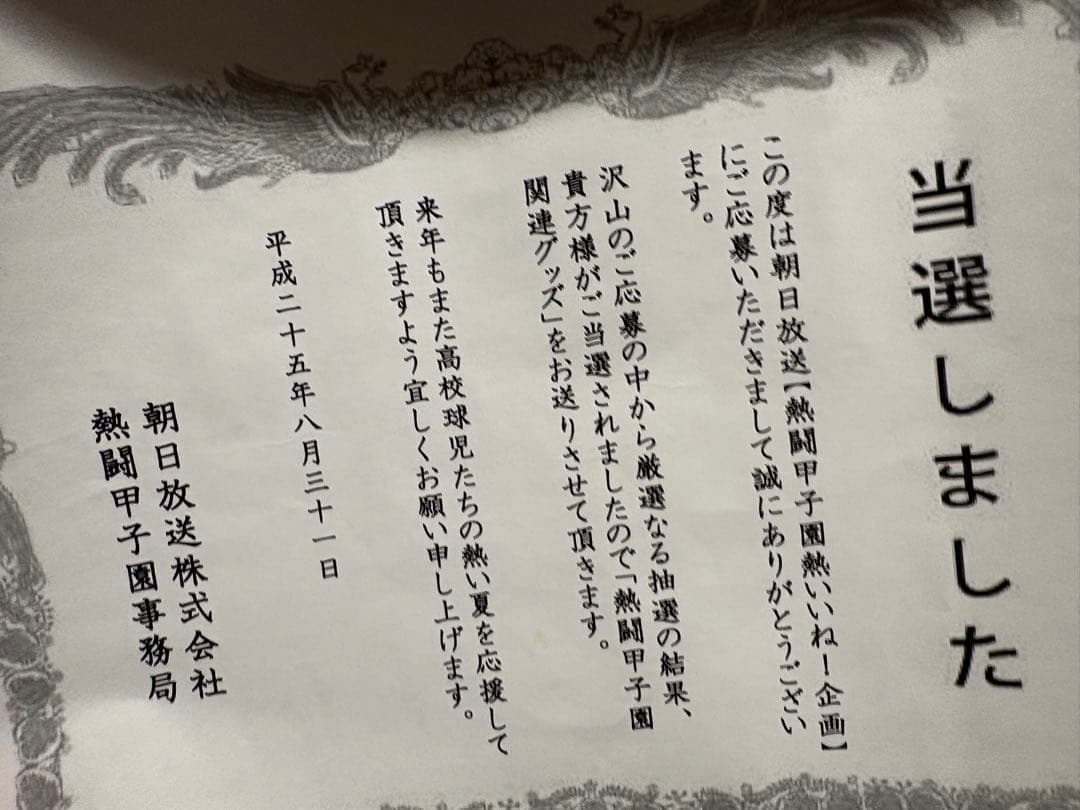 当選しました
この度は朝日放送【熱闘甲子園熱いいね！企画】
にご応募いただきまして誠にありがとうござい
ます。
沢山のご応募の中から厳選なる抽選の結果、
貴方様がご当選されましたので「熱闘甲子園
関連グッズ」をお送りさせて頂きます。
来年もまた高校球児たちの熱い夏を応援して
頂きますよう宜しくお願い申し上げます。
平成二十五年八月三十一日
朝日放送株式会社
熱闘甲子園事務局